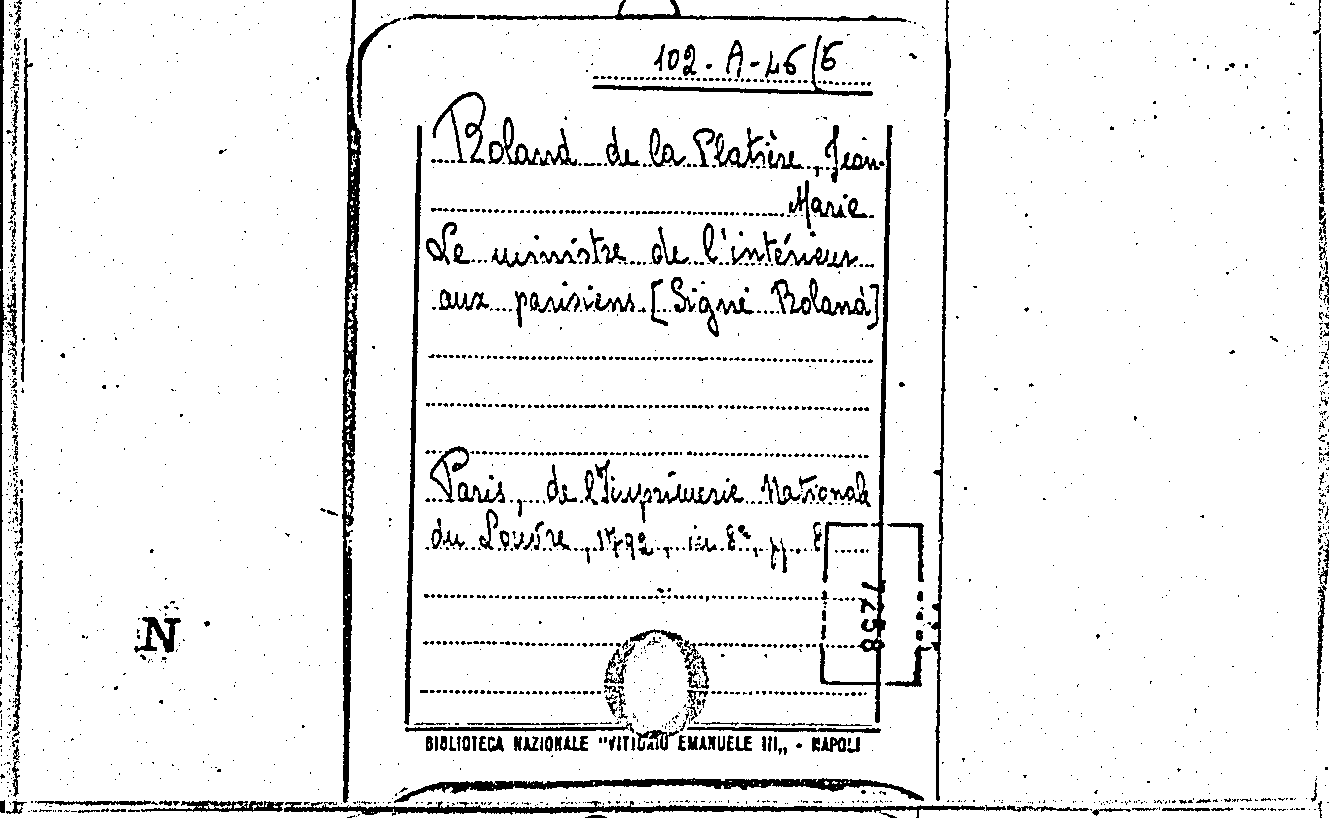 102-A-46/6
Roland de la Platière, Jean-
Marie
Le ministre de l'intérieur
aux parisiens [Signé Roland]
Paris, de l'Imprimerie Nationale
du Louvre, 1792, in 8°, pp. 8
7258
N
BIBLIOTECA NAZIONALE "VITTORIO EMANUELE III" - NAPOLI